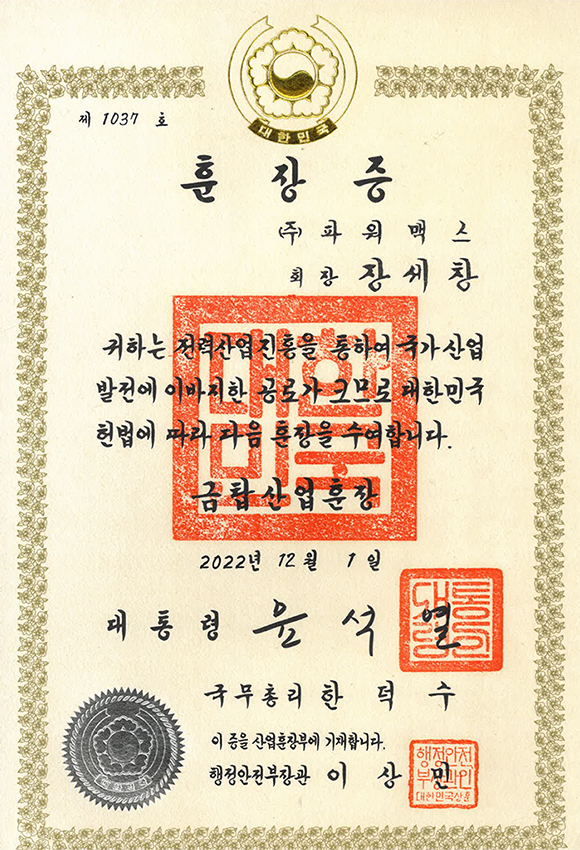 대한민국
제 1037 호
훈장증
(주) 파워맥스
회장 장세창
귀하는 전력산업진흥을 통하여 국가산업
발전에 이바지한 공로가 크므로 대한민국
헌법에 따라 다음 훈장을 수여합니다.
대한
민국
금탑산업훈장
2022년 12월 1일
대통령 윤석열
국무총리 한덕수
이 증을 산업훈장부에 기재합니다.
행정안전부장관 이상민
행정안전
부장관인